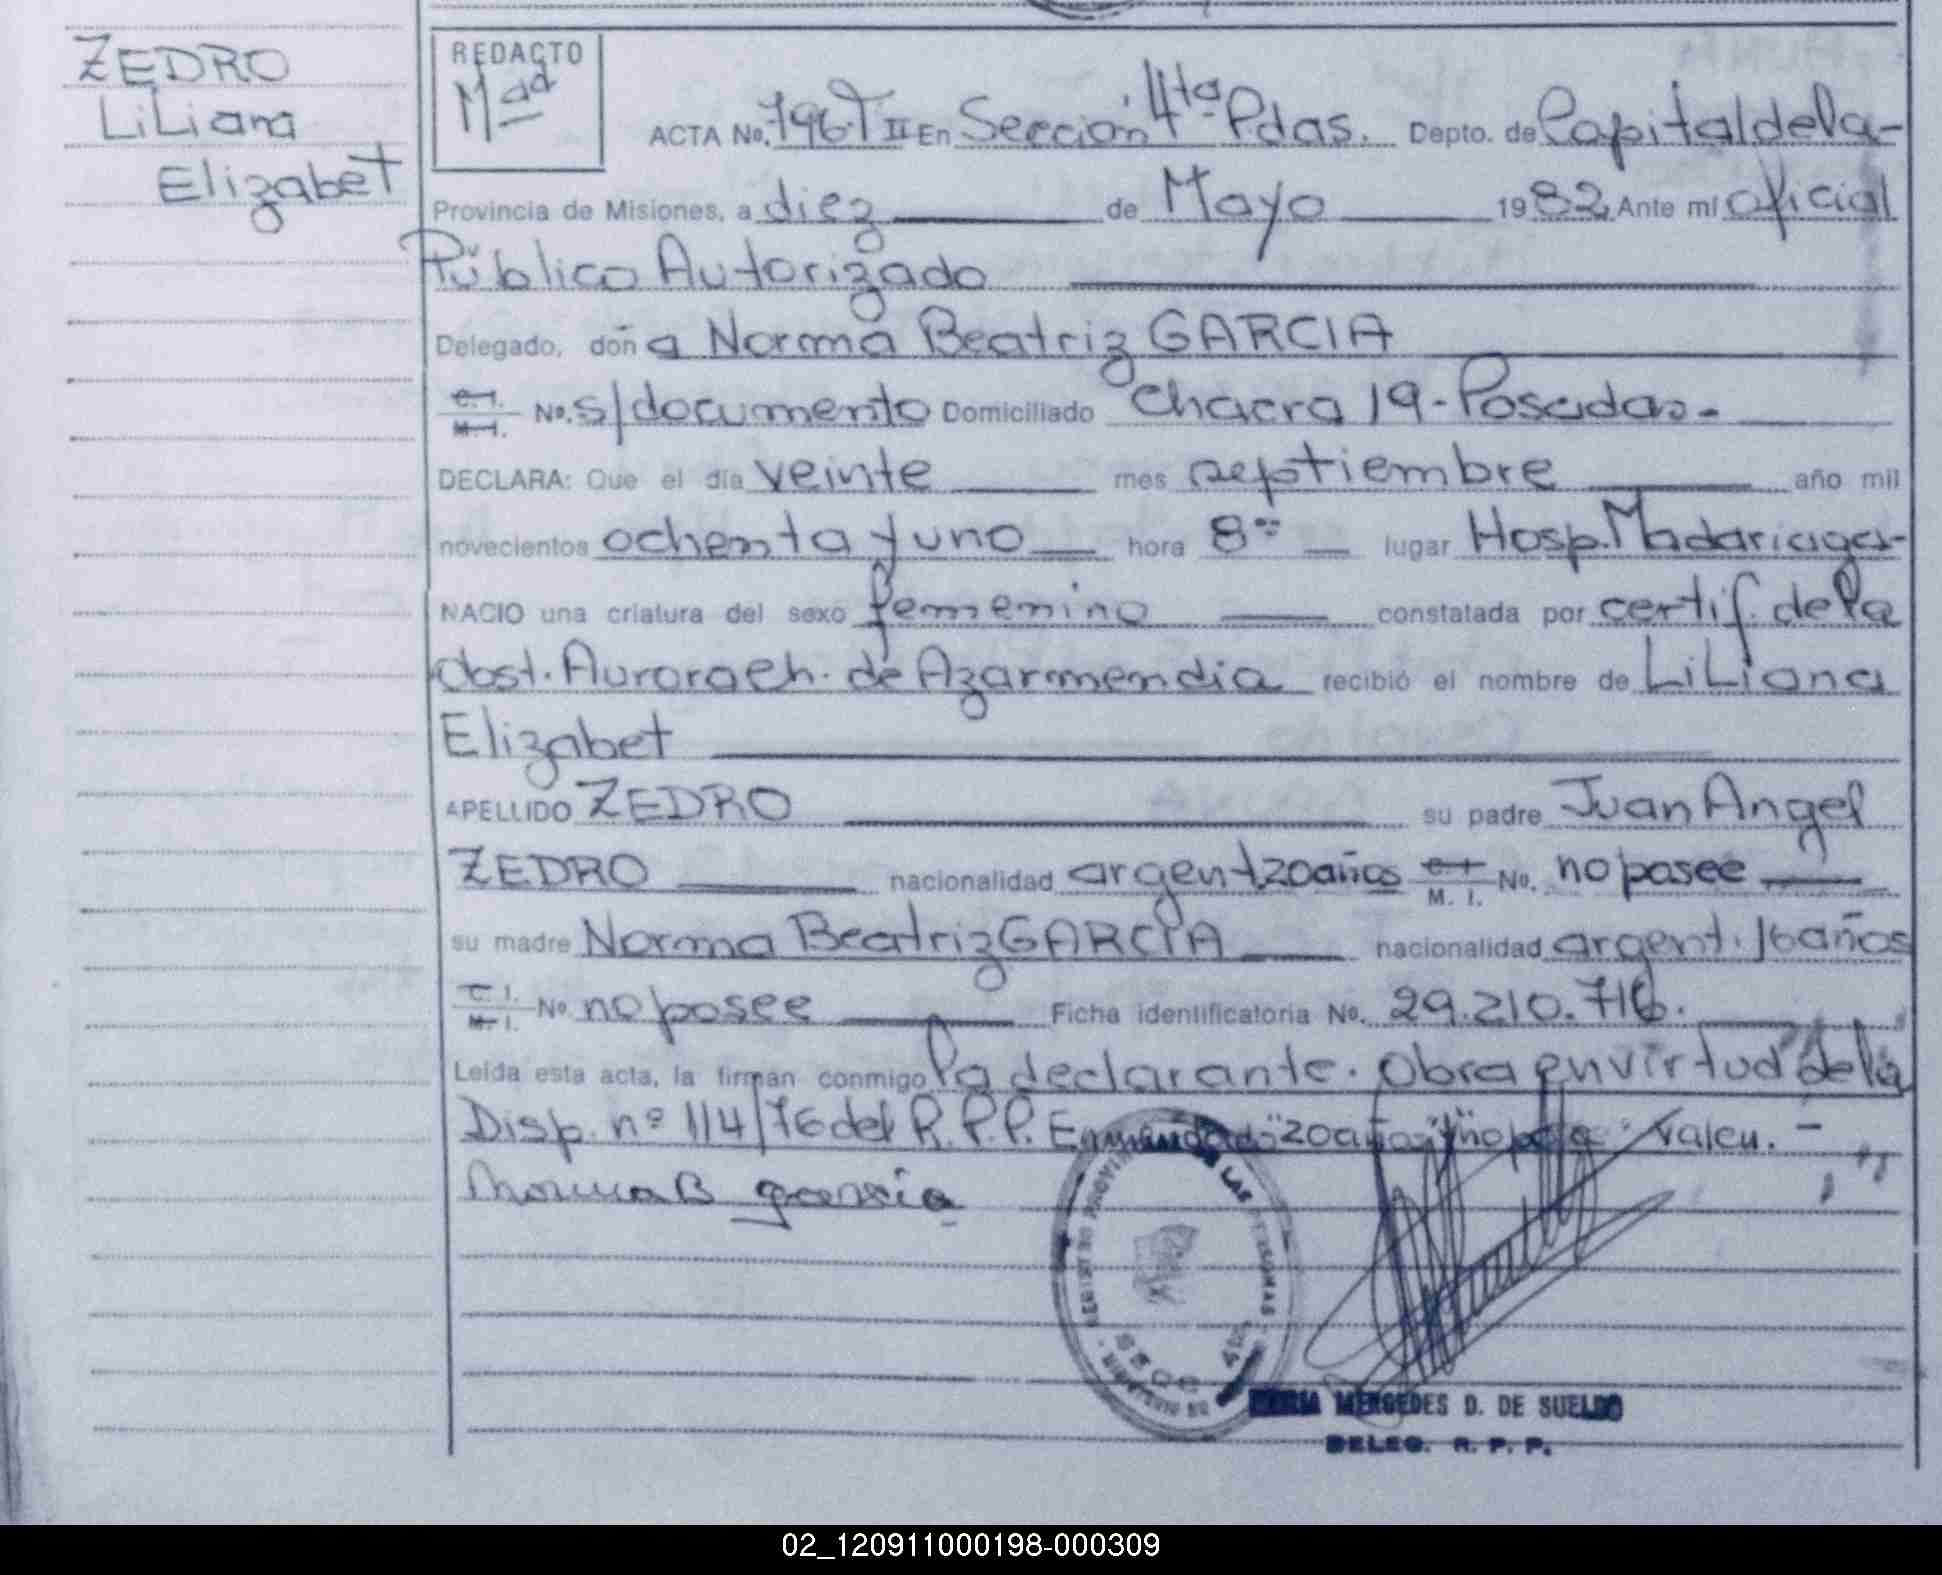 ZEDRO
LiLiana
Elizabet
REDACTO
Mad
ACTA No. 796 T II En Sección 4ta Pdas. Depto. de Capital de la-
Provincia de Misiones, a diez de Mayo 1982, Ante mí oficial
Público Autorizado
Delegado, doña Norma Beatriz GARCIA
C. I. M. I. No. s/documento Domiciliado Chacra 19-Posadas.-
DECLARA: Que el día veinte mes septiembre año mil
novecientos ochenta y uno hora 8 lugar Hosp. Madariaga-
NACIO una criatura del sexo femenino constatada por certif. de la
obst. Aurora Ch. de Azarmendia recibió el nombre de LiLiana
Elizabet
APELLIDO ZEDRO su padre Juan Angel
ZEDRO nacionalidad argent 20 años C. I. M. I. No. no posee
su madre Norma Beatriz GARCIA nacionalidad argent. 16 años
C. I. M. I. No no posee Ficha identificatoria No. 29.210.716.
Leída esta acta, la firman conmigo la declarante. Obra en virtud de la
Disp. nº 114/76 del R.P.P. Enmendado "20 años" y "no posee" Valen. -
Norma B garcia
REGISTRO PROVINCIAL DE LAS PERSONAS
SECC 4ta
MARIA MERCEDES D. DE SUELDO
DELEG. R. P. P.
02_120911000198-000309